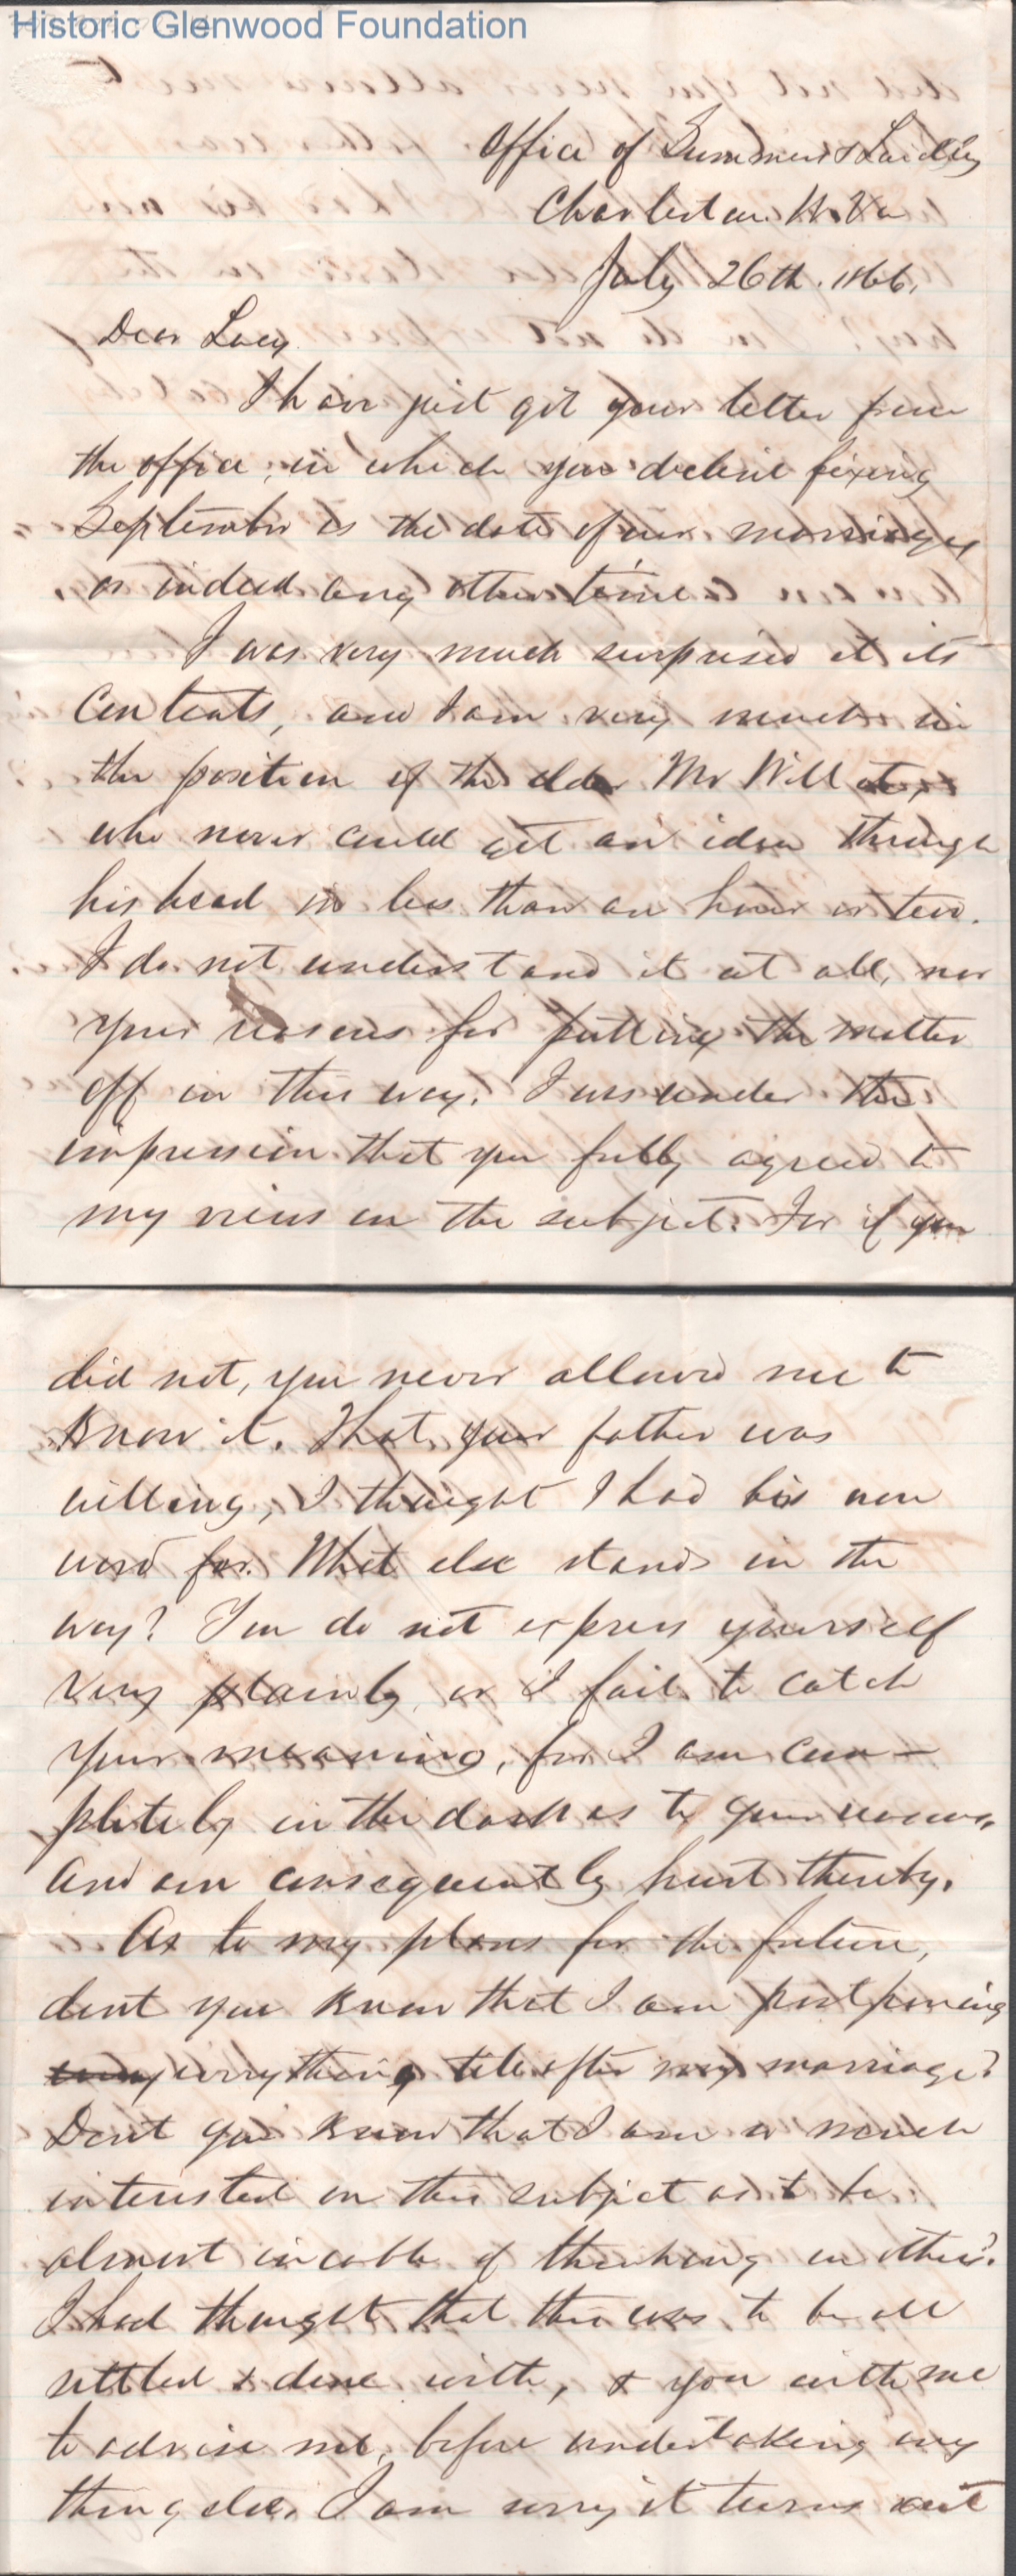 Historic Glenwood Foundation
Office of Summers & Laidley
Charleston W. Va
July 26th. 1866.
Dear Lucy.
I have just got your letter from
the office, in which you decline fixing
September as the date of our marriage
or indeed any other time.
I was very much surprised at its
contents, and I am very much in
the position of the elder Mr Willet,
who never could get an idea through
his head in less than an hour or two.
I do not understand it at all, nor
your reasons for putting the matter
off in this way. I was under the
impression that you fully agreed to
my views on the subject. For if you
did not, you never allowed me to
know it. That your father was
willing, I thought I had his own
word for. What else stands in the
way? You do not express yourself
very plainly, or I fail to catch
your meaning, for I am com-
pletely in the dark as to your reasons,
and am consequently hurt thereby.
As to my plans for the future,
dont you know that I am postponing
everything till after my marriage?
Dont you know that I am so much
interested on this subject as to be
almost incable of thinking on other?
I had thought that this was to be all
settled & done with, & you with me
to advise me, before undertaking any
thing else. I am sorry it turns out